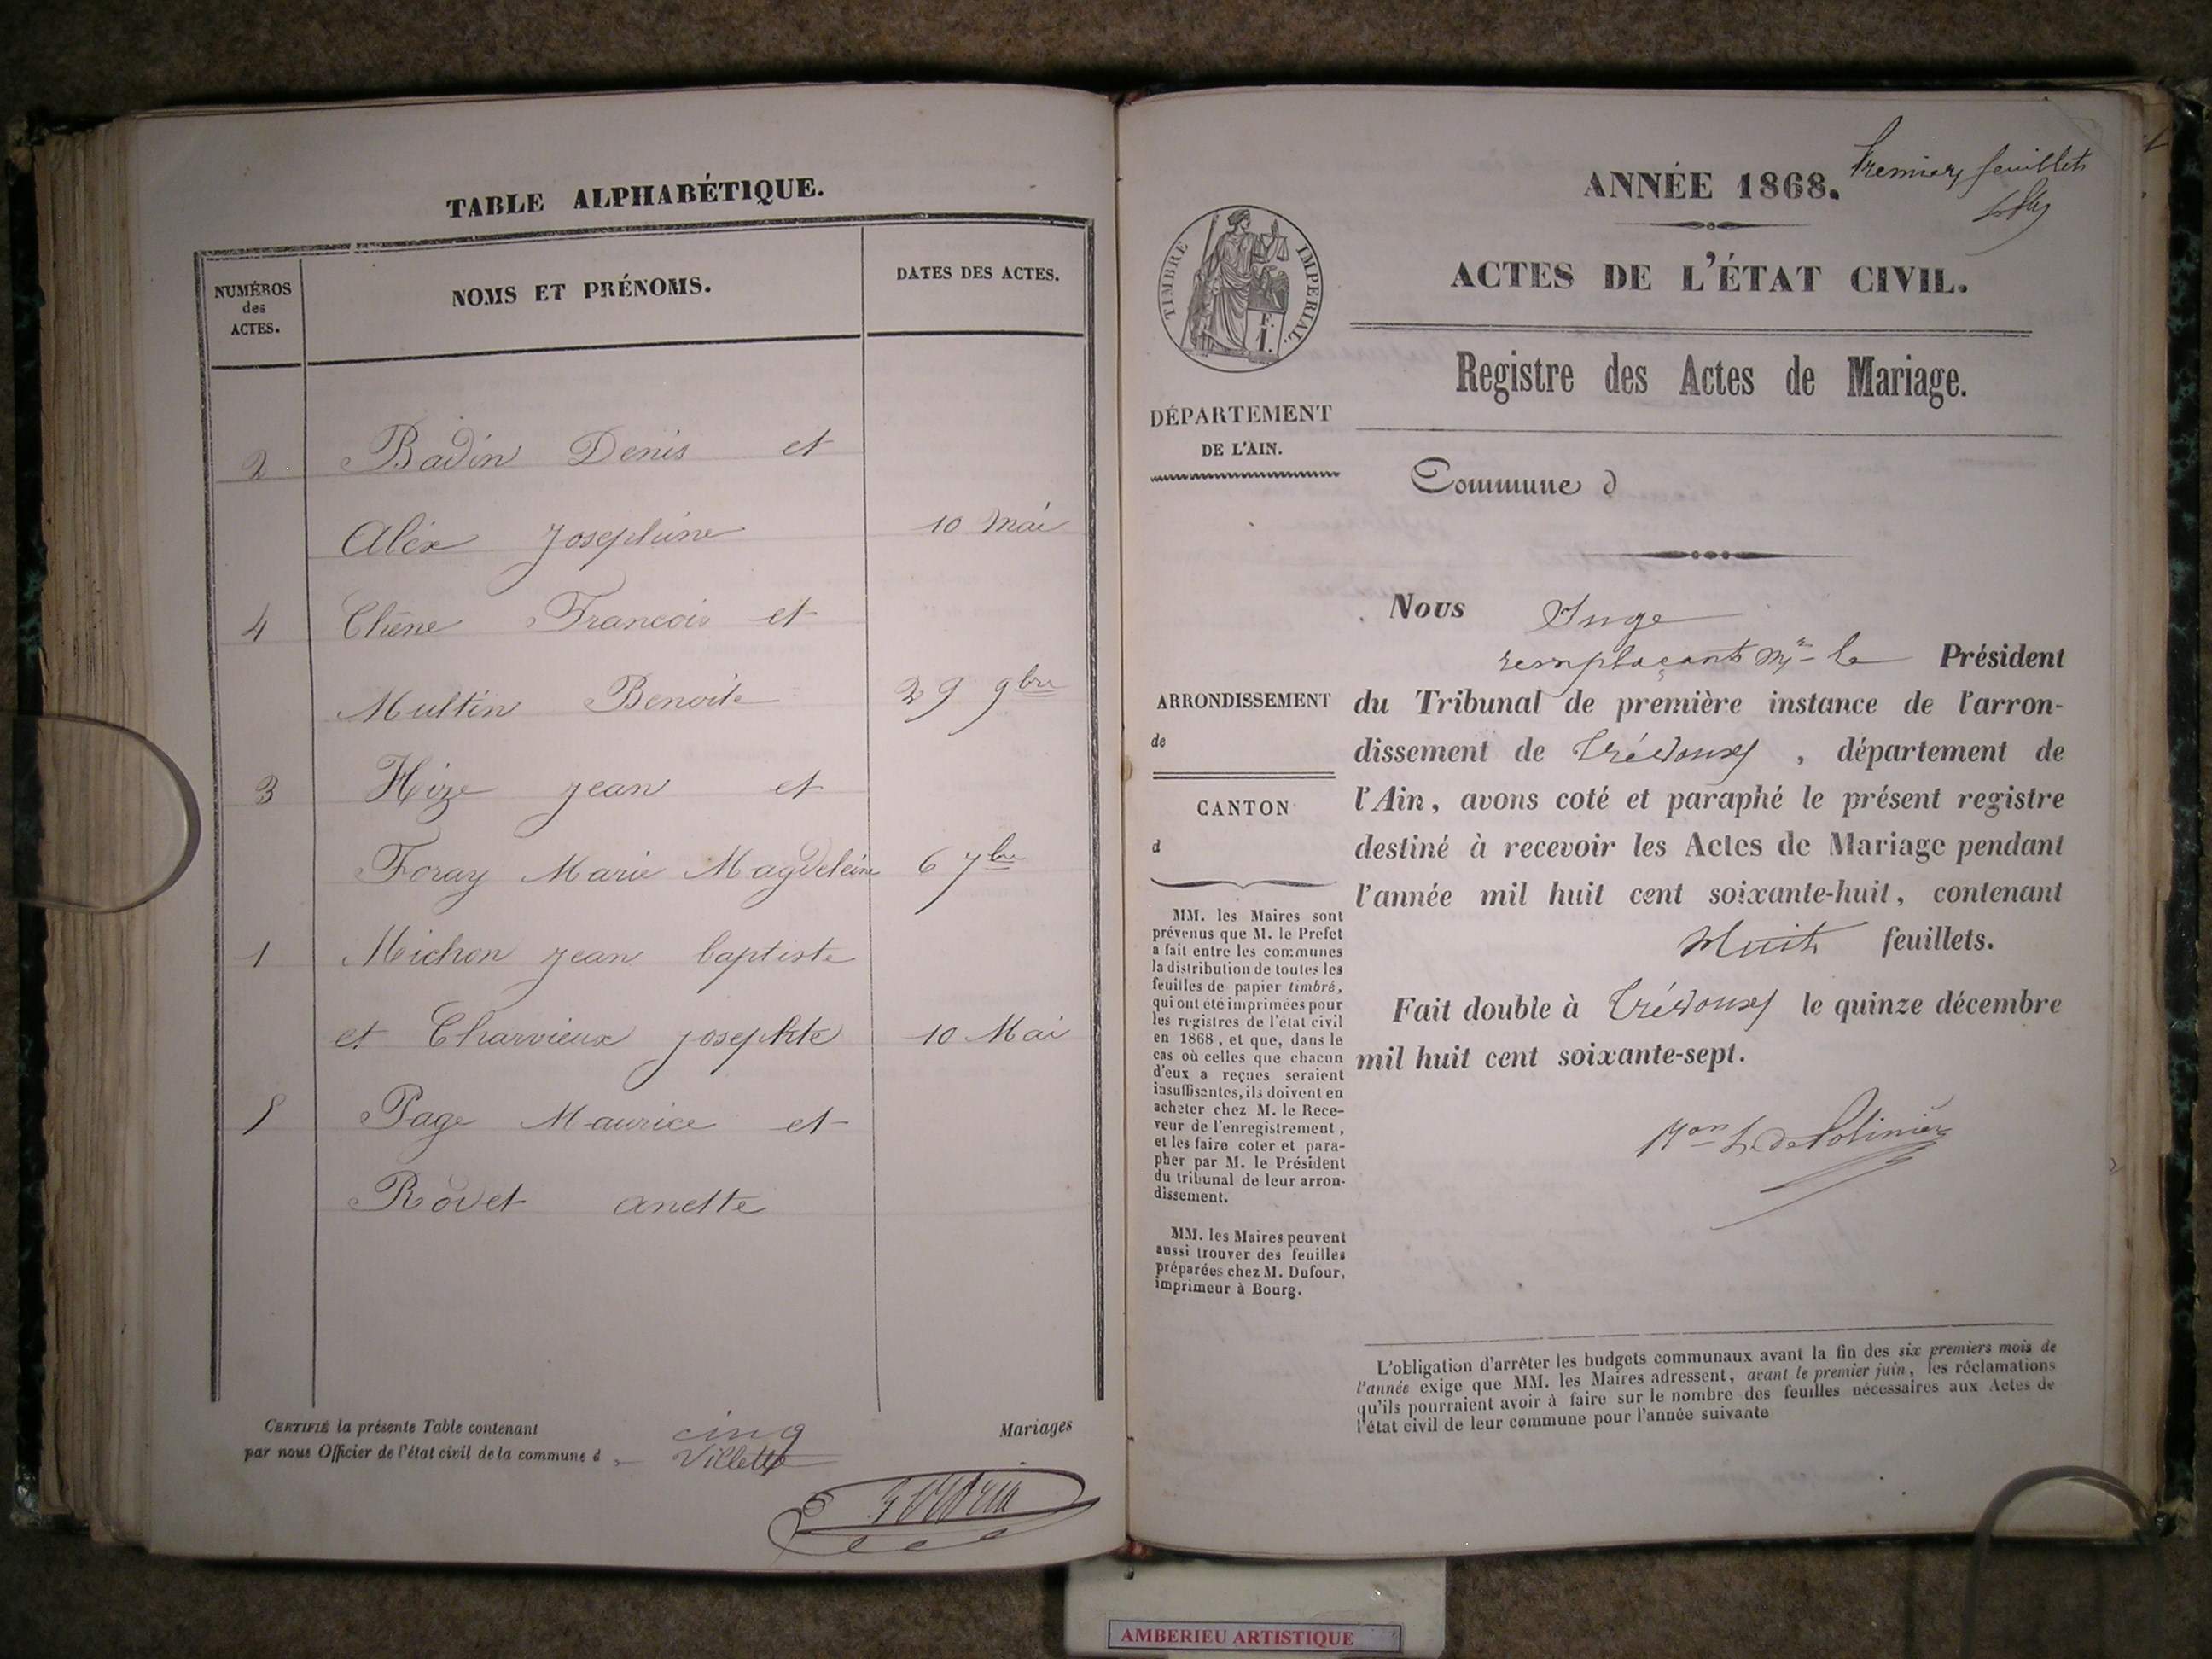 TABLE ALPHABÉTIQUE.
NUMÉROS
des
ACTES.
NOMS ET PRÉNOMS.
DATES DES ACTES.
2 Badin Denis et
Aléx Josephine 10 Mai
4 Chêne Francois et
Multin Benoite 29 9bre
3 Hize Jean et
Foray Marie Magdelein 6 7bre
1 Michon Jean baptiste
et Charvieux Josephte 10 Mai
5 Page Maurice et
Rovet Anette
CERTIFIÉ la présente Table contenant cinq Mariages
par nous Officier de l'état civil de la commune d Villette
ANNÉE 1868.
Premier feuillet
TIMBRE IMPERIAL.
F.
1.
ACTES DE L'ÉTAT CIVIL.
Registre des Actes de Mariage.
DÉPARTEMENT
DE L'AIN.
Commune d
Nous Juge
remplaçant Mr le Président
ARRONDISSEMENT
de
CANTON
d
du Tribunal de première instance de l'arron-
dissement de Trévoux, département de
l'Ain, avons coté et paraphé le présent registre
destiné à recevoir les Actes de Mariage pendant
l'année mil huit cent soixante-huit, contenant
Huit feuillets.
Fait double à Trévoux le quinze décembre
mil huit cent soixante-sept.
MM. les Maires sont
prévenus que M. le Prefet
a fait entre les communes
la distribution de toutes les
feuilles de papier timbré,
qui ont été imprimées pour
les registres de l'état civil
en 1868, et que, dans le
cas où celles que chacun
d'eux a reçues seraient
insuffisantes, ils doivent en
acheter chez M. le Rece-
veur de l'enregistrement,
et les faire coter et para-
pher par M. le Président
du tribunal de leur arron-
dissement.
MM. les Maires peuvent
aussi trouver des feuilles
préparées chez M. Dufour,
imprimeur à Bourg.
L'obligation d'arrêter les budgets communaux avant la fin des six premiers mois de
l'année exige que MM. les Maires adressent, avant le premier juin, les réclamations
qu'ils pourraient avoir à faire sur le nombre des feuilles nécessaires aux Actes de
l'état civil de leur commune pour l'année suivante
AMBERIEU ARTISTIQUE